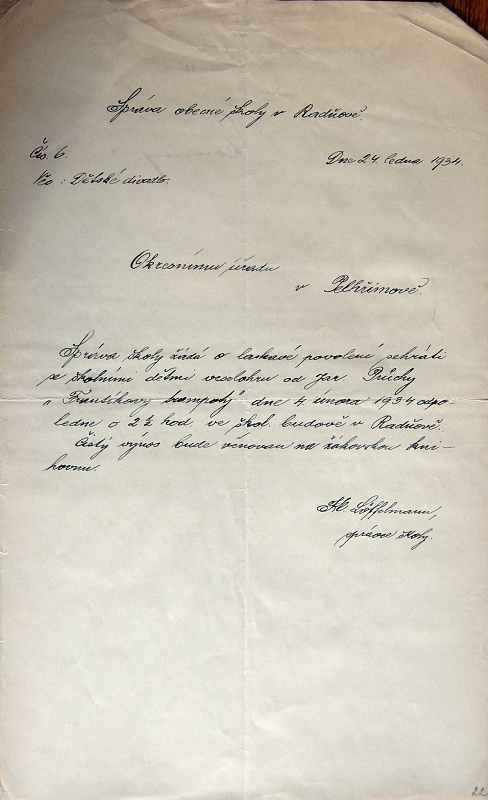 Správa obecné školy v Radňově.
Čís. 6.
Dne 24. ledna 1934.
Věc: Dětské divadlo.
Okresnímu úřadu
v Pelhřimově.
Správa školy žádá o laskavé povolení sehráti
se školními dětmi veselohru od Jar. Průchy
"Františkovy trampoty" dne 4. února 1934 odpo-
ledne o 2½ hod. ve škol. budově v Radňově.
Čistý výnos bude věnován na žákovskou kni-
hovnu.
Löffelmann,
správce školy.
22